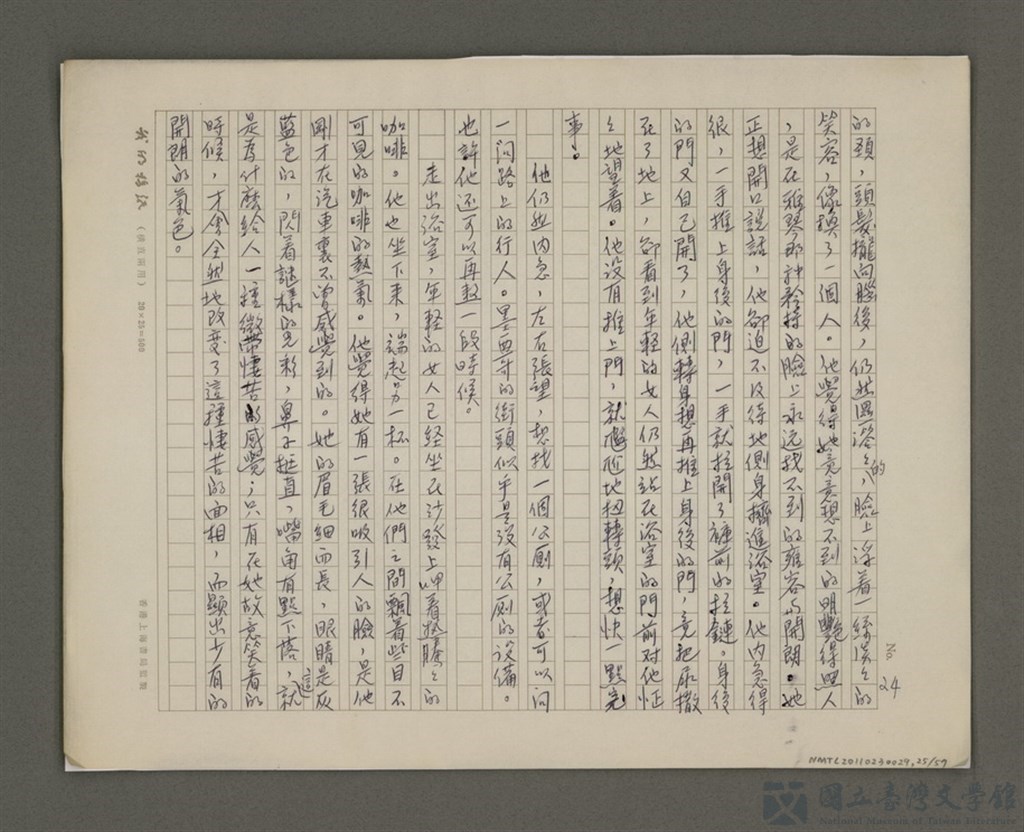 No. 24
的頸，頭髮攏向腦後，仍然濕溶溶的，臉上浮着一絲淡淡的
笑容，像換了一個人。他覺得她竟意想不到的明艷得照人
，是在雅琴那種矜持的臉上永远找不到的雍容与開朗。她
正想開口說話，他卻迫不及待地側身擠進浴室。他內急得
很，一手推上身後的門，一手就拉開了褲前的拉鏈。身後
的門又自己開了，他側轉身想再推上身後的門，竟把尿撒
在了地上，卻看到年輕的女人仍然站在浴室的門前对他怔
怔地望着。他沒有推上門，就尷尬地扭轉頭，想快一點完
事。
他仍然内急，左右張望，想找一個公厠，或者可以问
一问路上的行人。墨西哥的街頭似乎是沒有公厠的設備。
也許他还可以再熬一段時候。
走出浴室，年輕的女人已經坐在沙發上呷着热騰騰的
咖啡。他也坐下来，端起另一杯。在他們之間飄着些目不
可見的咖啡的熱氣。他覺得她有一張很吸引人的臉，是他
剛才在汽車裏不曾感覺到的。她的眉毛細而長，眼睛是灰
藍色的，閃着謎樣的光彩，鼻子挺直，嘴角有點下搭，這就
是為什麼給人一種微帶悽苦的感覺；只有在她故意笑着的
時候，才會全然地改变了這種悽苦的面相，而顯出少有的
開朗的氣色。
20×25=500
NMTL20110230029,25/57
國立臺灣文學館
National Museum of Taiwan Literature